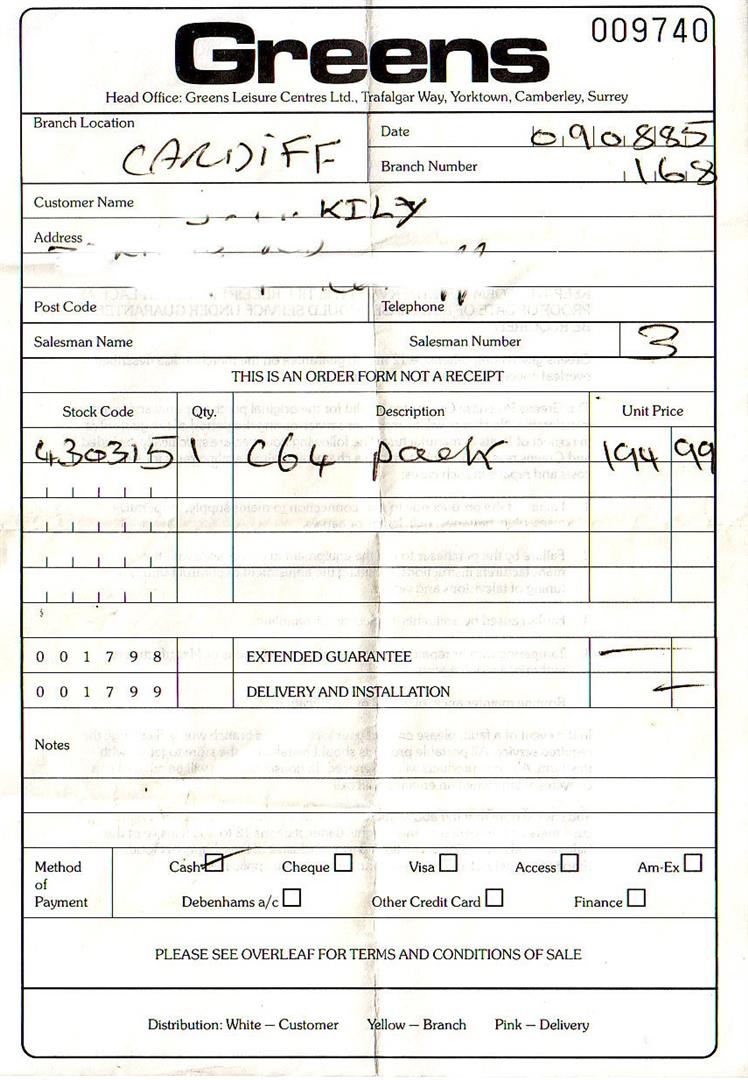 Greens
009740
Head Office: Greens Leisure Centres Ltd., Trafalgar Way, Yorktown, Camberley, Surrey
Branch Location
CARDIFF
Date 090885
Branch Number 168
Customer Name KILY
Address
Post Code Telephone
Salesman Name Salesman Number 3
THIS IS AN ORDER FORM NOT A RECEIPT
Stock Code Qty. Description Unit Price
430315 1 C64 pack 194 99
001798 EXTENDED GUARANTEE —
001799 DELIVERY AND INSTALLATION —
Notes
Method of Payment
Cash Cheque Visa Access Am-Ex
Debenhams a/c Other Credit Card Finance
PLEASE SEE OVERLEAF FOR TERMS AND CONDITIONS OF SALE
Distribution: White — Customer Yellow — Branch Pink — Delivery